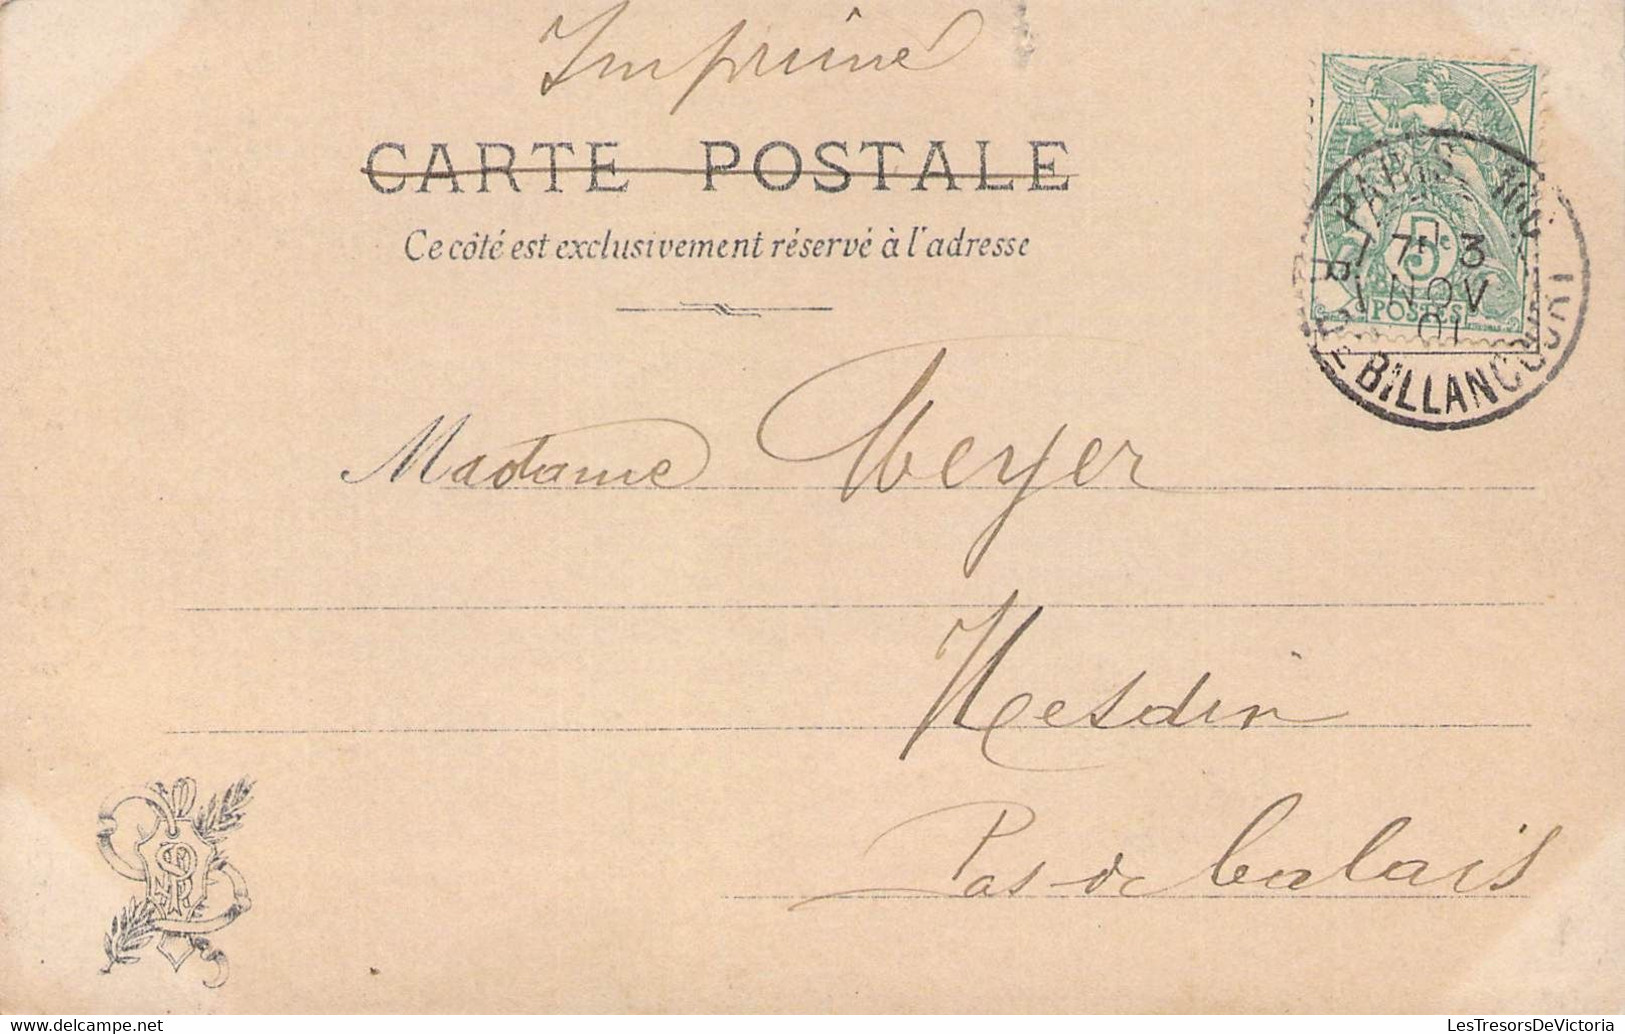 Imprimé
CARTE POSTALE
Ce côté est exclusivement réservé à l'adresse
5c
POSTES
PARIS
7E 3
1 NOV
01
BILLANCOURT
Madame Meyer
Hesdin
Pas-de Calais
LesTresorsDeVictoria
www.delcampe.net